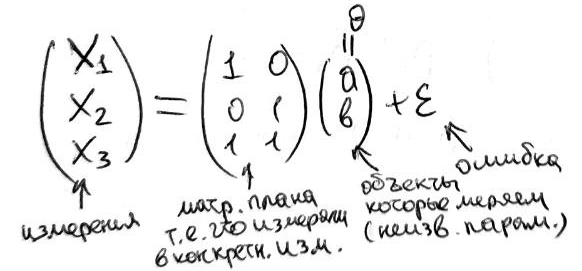 θ
||
(X₁) = (1 0) (a) + ε
(X₂) (0 1) (в)
(X₃) (1 1)
измерения
матр. плана
т.е. что измеряли
в конкретн. изм.
объекты
которые меряем
(неизв. парам.)
ошибка